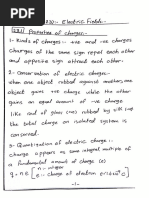 23):- Electric Fields:-
23.1 Properties of charges:-
1- Kinds of charges:- +ve and -ve charges
Charges of the same sign repel each other
and opposite sign attract each other.
2- Conservation of electric charge:-
when one object rubbed another matter, one
object gains +ve charge while the other
object gains equal amount of -ve charge
like out of glass (rod) rubbed by silk ...
the total charge on isolated system is
conserved.
3- Quantization of electric charge:-
charge appears as some integral multiple of
a fundamental amount of charge (e)
q = n e
n - integer
e - charge of electron e=1.6x10
-1-